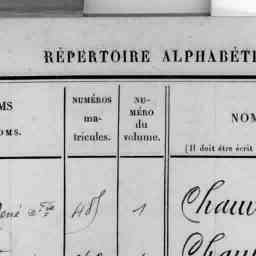 RÉPERTOIRE ALPHABÉTI
MS
OMS.
NUMÉROS
ma-
tricules.
NU-
MÉRO
du
volume.
NOM
(Il doit être écrit
485
1
Chauv
Chau